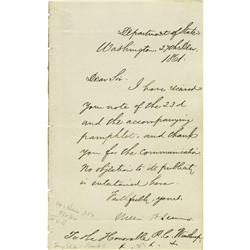 Department of State
Washington 27th Nov.
1861.
Dear Sir.
I have received
your note of the 23d
and the accompanying
pamphlet, and thank
you for the communication
No objection to its publicat
is entertained here.
Faithfully yours.
To the Honorable R. C. Winthrop